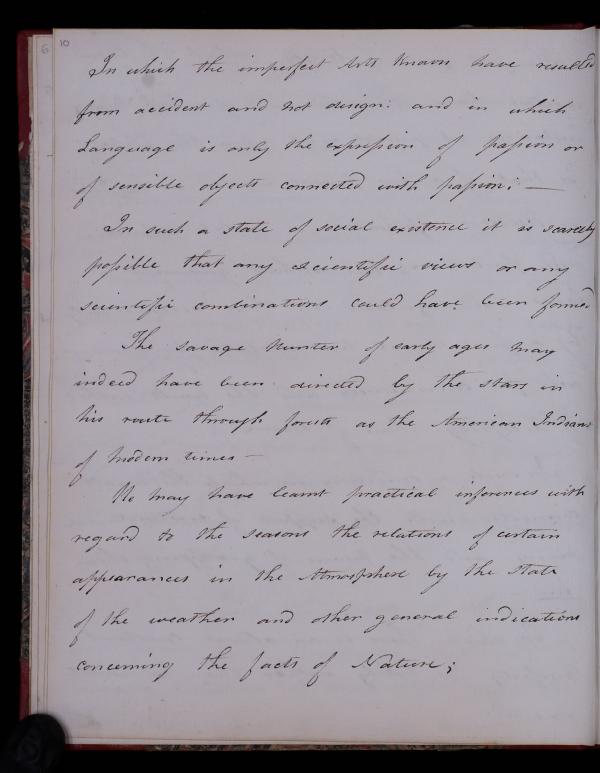 6 10
In which the imperfect Arts known have resulted
from accident and not design: and in which
Language is only the expression of passion or
of sensible objects connected with passion; —
In such a state of social existence it is scarcely
possible that any scientific views or any
scientific combinations could have been formed
The savage Hunter of early ages may
indeed have been directed by the stars in
his route through forests as the American Indians
of modern times —
He may have learnt practical inferences with
regard to the seasons the relations of certain
appearances in the Atmosphere by the state
of the weather and other general indications
concerning the facts of Nature;